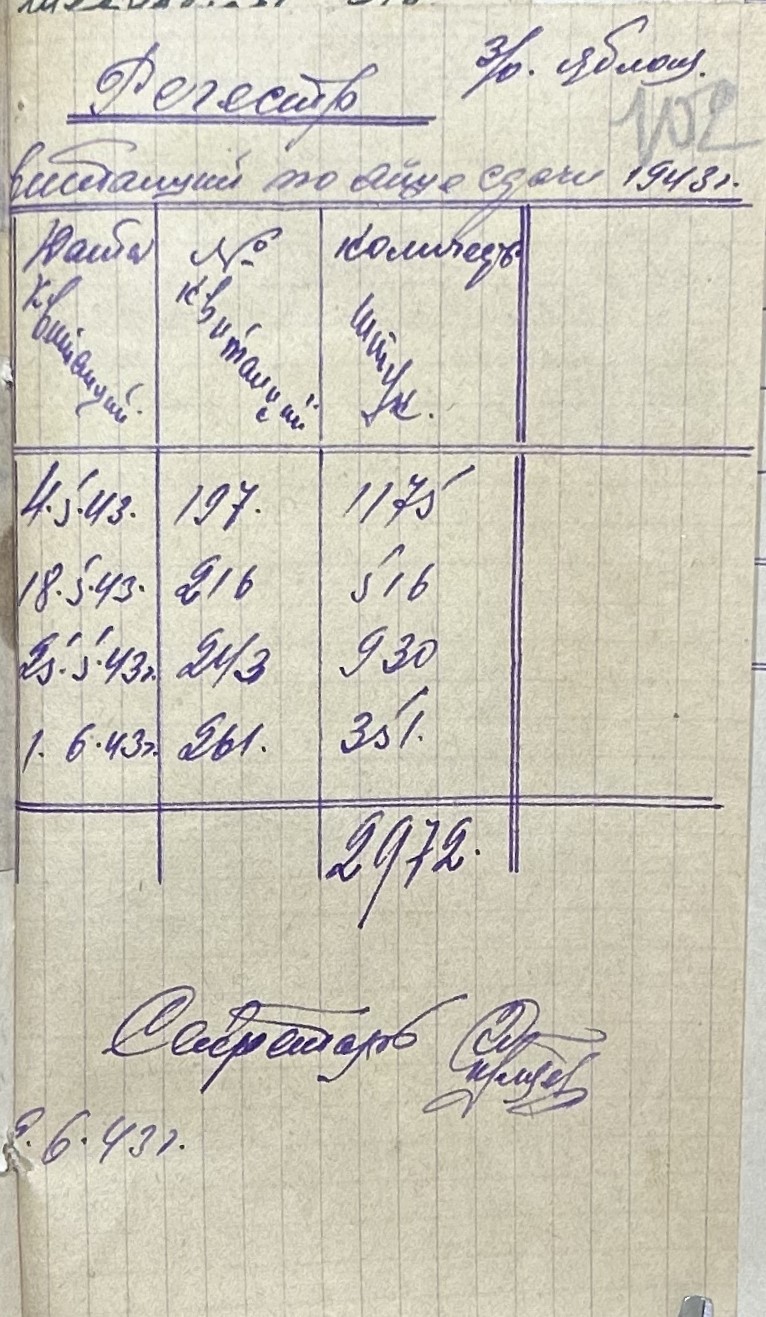 Регестр
з/о. яблощ.
102
квитанций по яйце сдачи 1943 г.
Дата квитанций.
№ квитанций
количеств штук.
4.5.43. 197. 1175
18.5.43. 216 516
25.5.43г. 243 930
1. 6.43г. 261. 351.
2972.
Секретарь
6.43г.